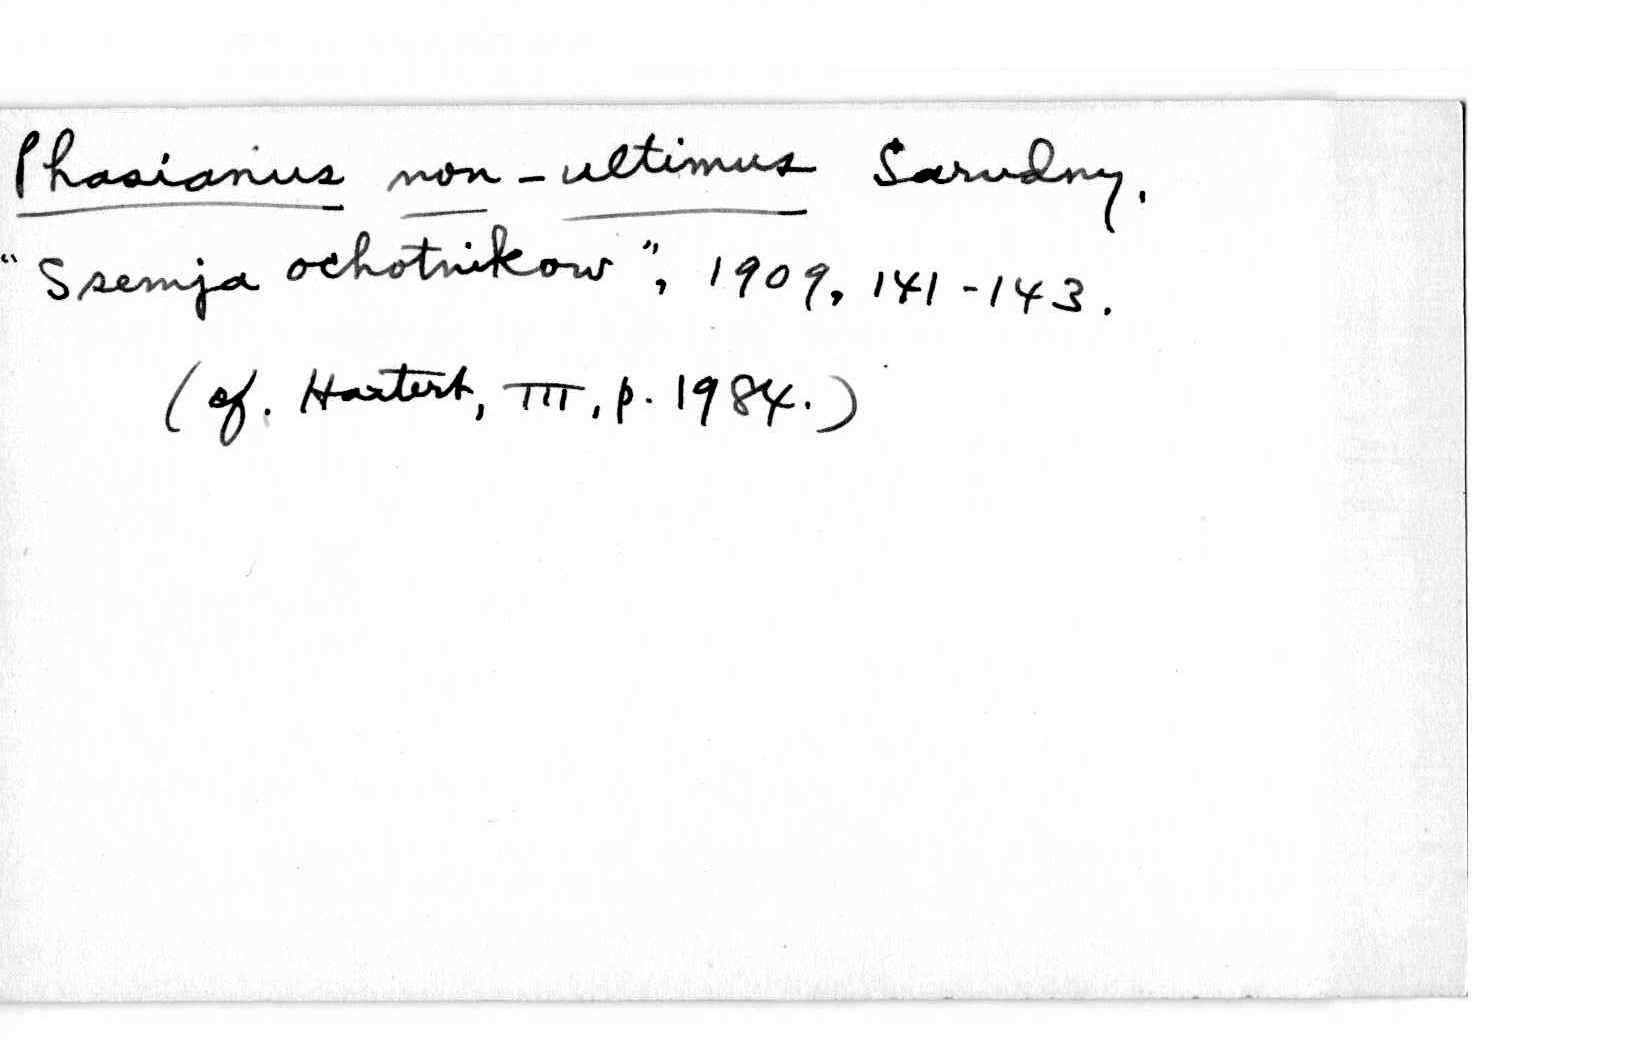 Phasianus non-ultimus Sarudny.
"Ssemja ochotnikow", 1909, 141-143.
(cf. Hartert, III, p. 1984.)